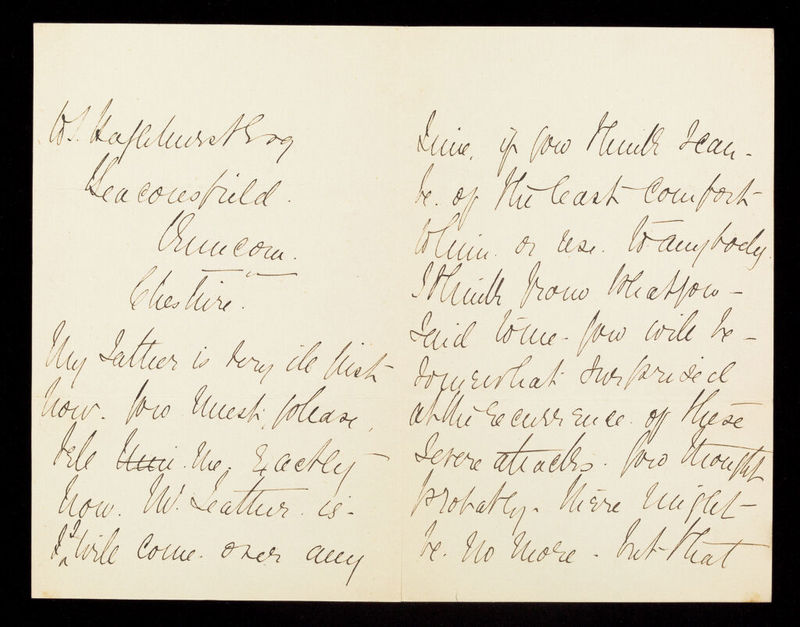 W.S. Hazlehurst Esq
Beaconsfield.
Runcorn.
Cheshire.
My Father is very ill just
now. You must, please,
tell him me, exactly
how. Mr. Leather. is.
& I will come over any
time, if you think I can-
be. of the least comfort
to him. or use. to anybody.
I think from what you-
said to me. you will be-
somewhat surprised
at the recurrence of these
severe attacks. You thought
probably. there might-
be. no more. but that